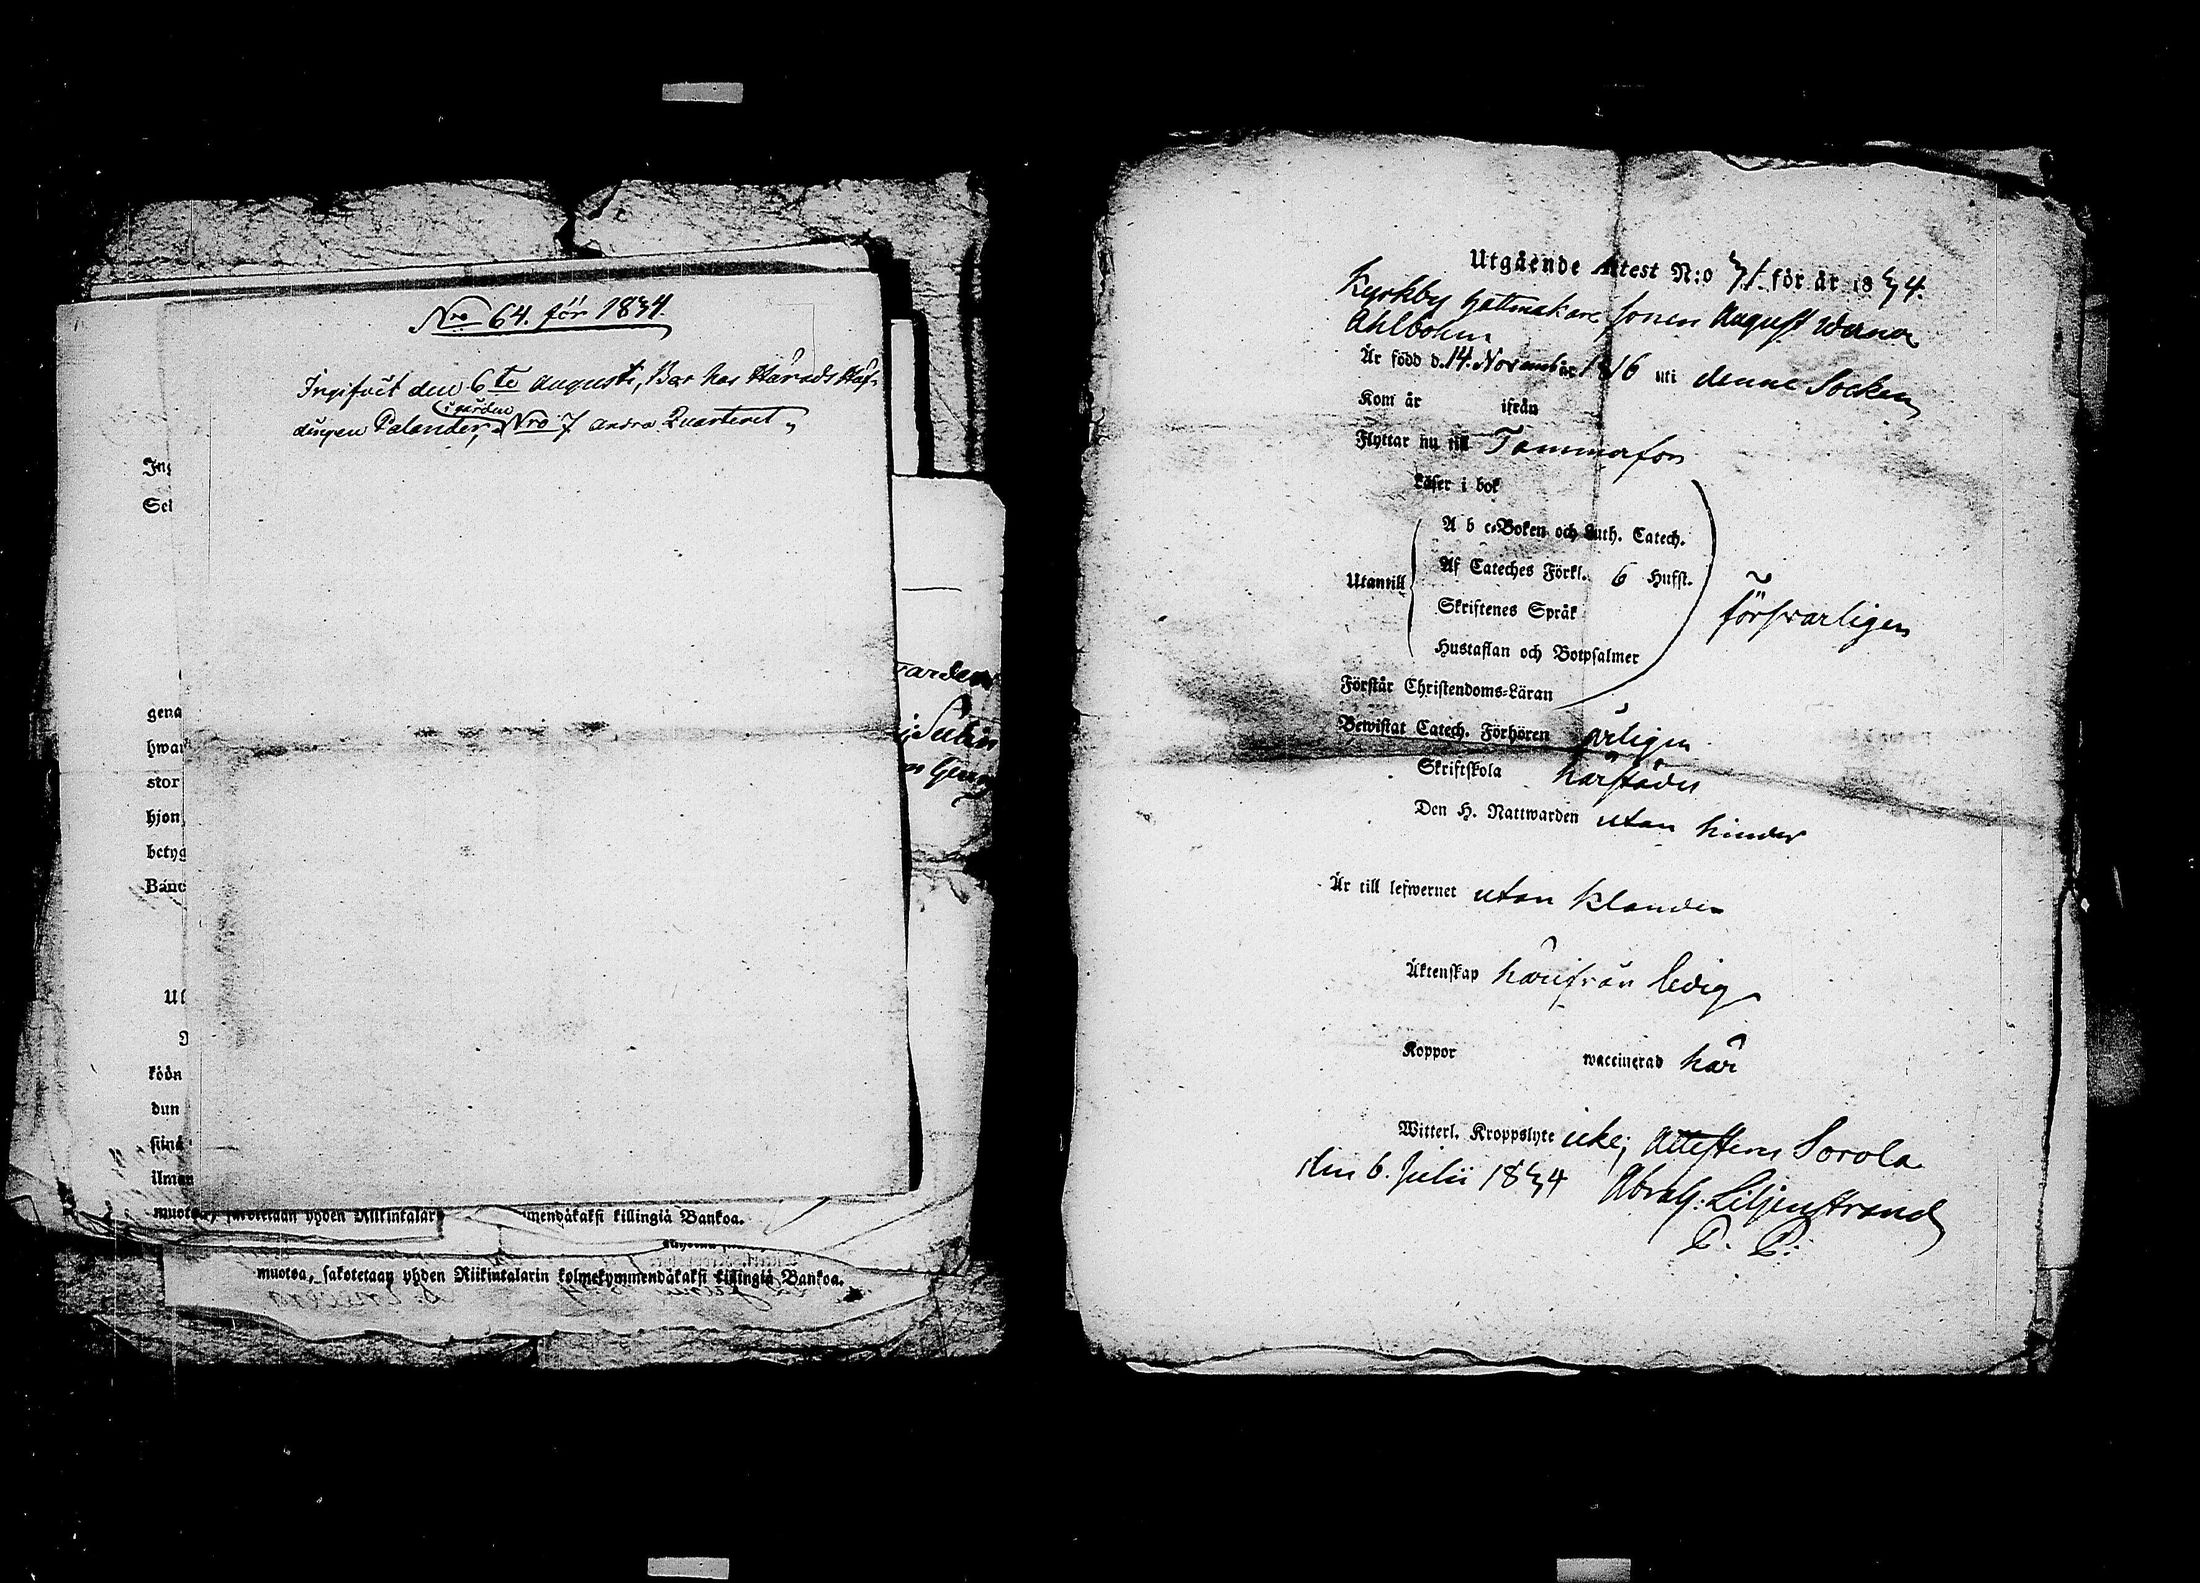 Nro 64. för 1834.
Ingifvit den 6te Augusti, Bor hos Härads Höf-
dingen Palander, i gården Nro 7 andra Quarteret,
Ing
Sel
gena
hwar
stor
hjon,
betyg
Banc
Ul
köön
dun
siinä
ilman
muotoa, sakotetaan yhden Riikintalar
mendäkaksi killingiä Bankoa.
muotoa, sakotetaan yhden Riikintalarin kolmekymmendäkaksi killingiä Bankoa.
Utgående Attest N:o 71. för år 1834.
Kyrkby Hattmakare sonen August Werner
Ahlbohm
Är född d. 14. November 1816 uti denne Socken
Kom år ifrån
Flyttar nu till Tammerfors
Läser i bok
Utantill
A b c-Boken och Luth. Catech.
Af Cateches Förkl. 6 Hufst.
Skriftenes Språk
Hustaflan och Botpsalmer
försvarligen
Förstår Christendoms-Läran
Bewistat Catech. Förhören årligen
Skriftskola härstädes
Den H. Nattwarden utan hinder
Är till lefwernet utan klander
Äktenskap härifrån ledig
Koppor waccinerad här
Witterl. Kroppslyte icke; Attesteras Sorola
den 6. Julii 1834 Abrah: Liljenstrand
P. P.